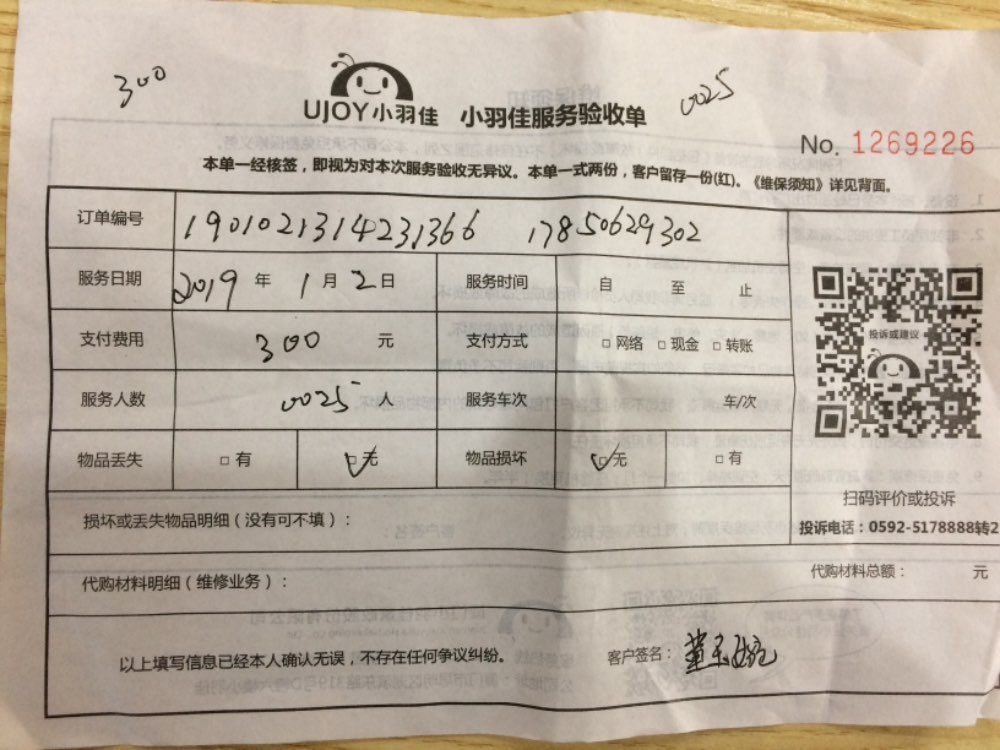 300
UJOY小羽佳 小羽佳服务验收单
0025
No. 1269226
本单一经核签，即视为对本次服务验收无异议。本单一式两份，客户留存一份(红)。《维保须知》详见背面。
订单编号 1901021314231366 17850629302
服务日期 2019 年 1 月 2 日 服务时间 自 至 止
支付费用 300 元 支付方式 □ 网络 □ 现金 □ 转账
服务人数 0025 人 服务车次 车/次
物品丢失 □ 有 □ 无 物品损坏 □ 无 □ 有
投诉或建议
扫码评价或投诉
投诉电话：0592-5178888转2
损坏或丢失物品明细（没有可不填）：
代购材料明细（维修业务）： 代购材料总额： 元
以上填写信息已经本人确认无误，不存在任何争议纠纷。 客户签名：